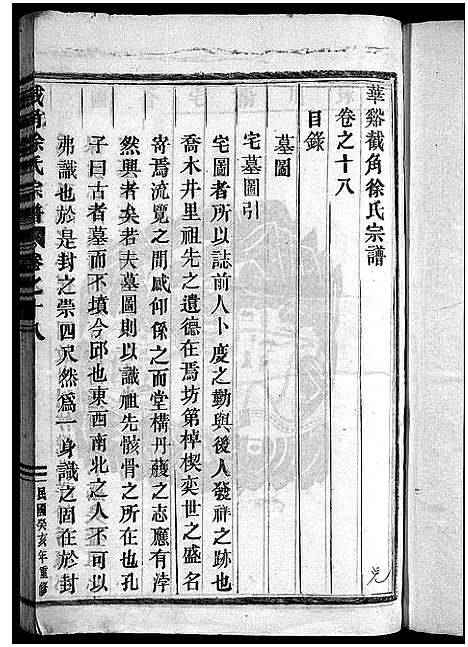 華谿截角徐氏宗譜
卷之十八
目錄
墓圖
宅墓圖引
宅圖者所以誌前人卜度之勤與後人發祥之跡也
喬木井里祖先之遺德在焉坊第棹楔奕世之盛名
寄焉流覽之間感仰係之而堂構丹雘之志應有浡
然興者矣若夫墓圖則以識祖先骸骨之所在也孔
子曰古者墓而不墳今邱也東西南北之人不可以
弗識也於是封之崇四尺然爲一身識之固在於封
截角徐氏宗譜 卷之十八
民國癸亥年重修